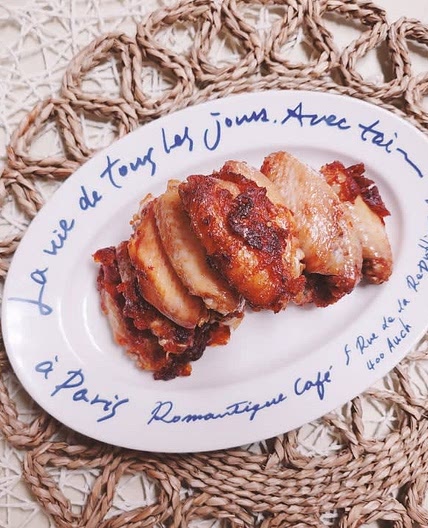 La vie de tous les jours. Avec toi—
à Paris
Romantique Café
5 Rue de la République
400 Auch